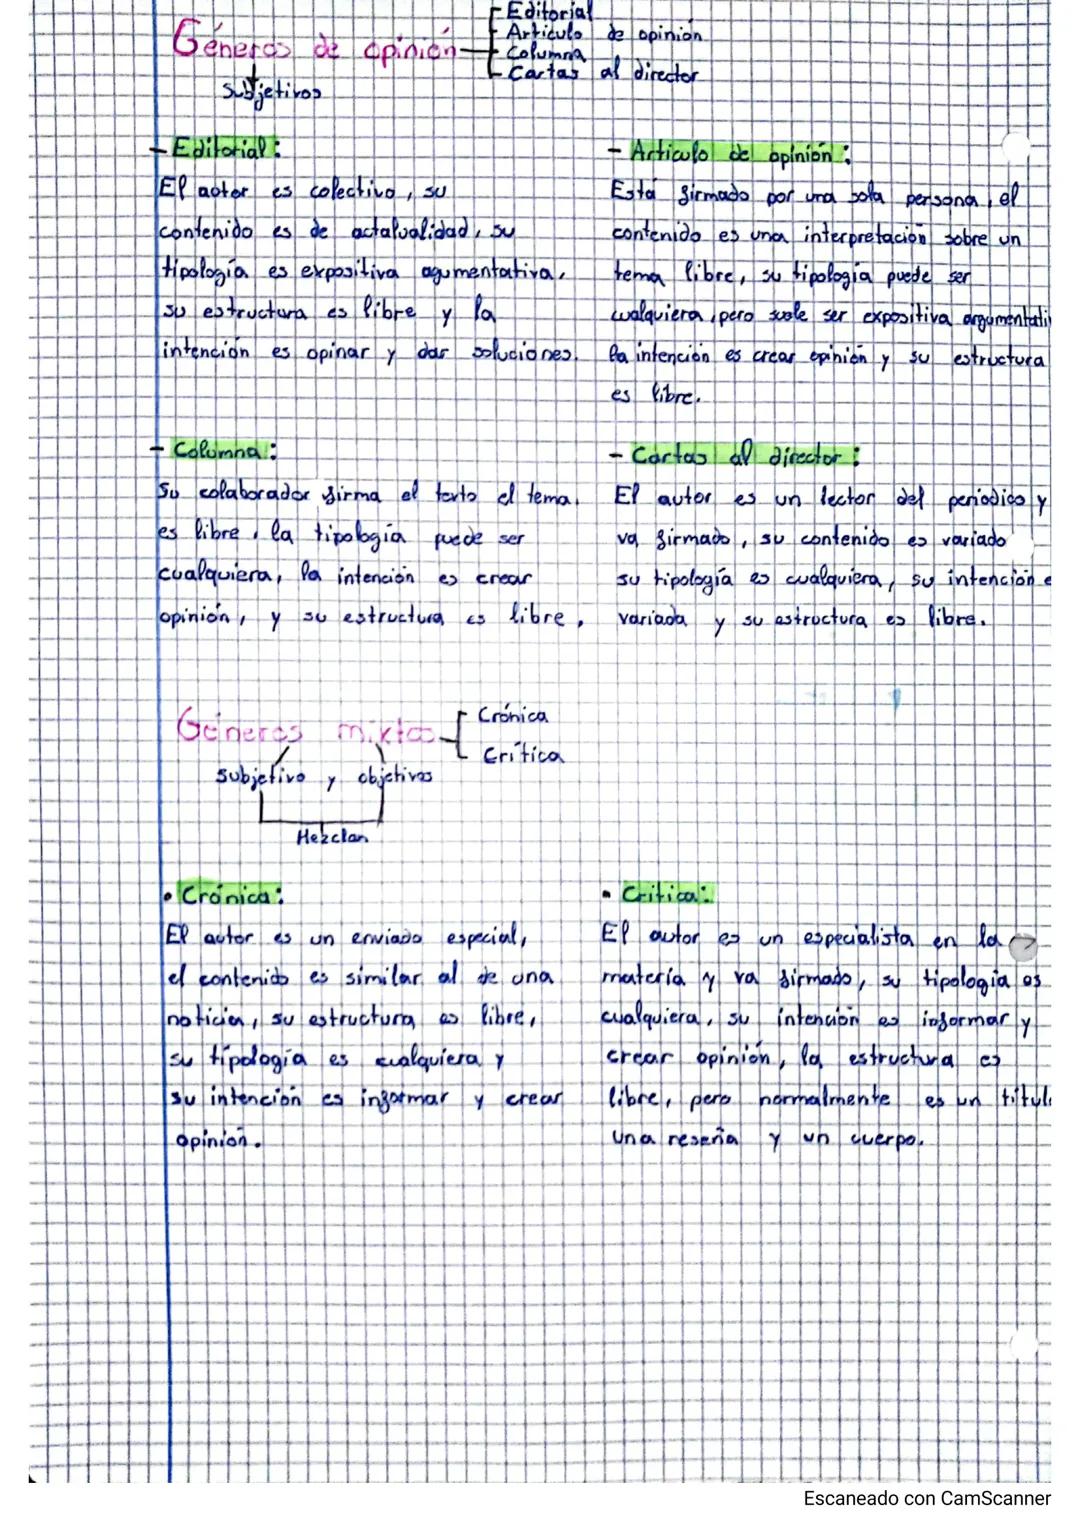 Géneros de opinión
Editorial
Artículo de opinión
Columna
Cartas al director
subjetivos
- Editorial:
El autor es colectivo, su
contenido es de actalualidad, su
tipología es expositiva agumentativa,
su estructura es libre y la
intención es opinar y dar soluciones.
- Articulo de opinión:
Está firmado por una sola persona, el
contenido es una interpretación sobre un
tema libre, su tipología puede ser
cualquiera, pero suele ser expositiva argumentati
la intención es crear opinión y su estructura
es libre.
- Columna:
Su colaborador firma el texto el tema,
es libre, la tipología puede ser
cualquiera, la intención es crear
opinión, y su estructura es libre,
- Cartas al director:
El autor es un lector del periodico y
va firmado, su contenido es variado
su tipología es cualquiera, su intención e
variada y su estructura es libre.
Géneros mixtos
Crónica
Crítica
subjetivo y objetivos
Mezclan
• Crónica:
El autor es un enviado especial,
el contenido es similar al de una
noticia, su estructura es libre,
su tipología es cualquiera y
su intención es informar y crear
opinión.
• Critica:
El autor es un especialista en la
matería y va firmado, su tipología es
cualquiera, su intención es informar y
crear opinión, la estructura es
libre, pero normalmente es un títul
una reseña y un cuerpo.
Escaneado con CamScanner